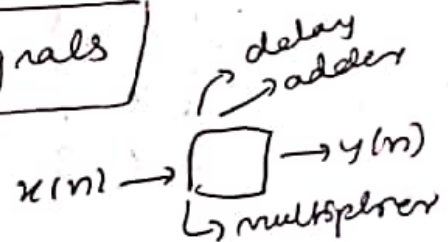 nals
delay
adder
x(n) → → y(n)
multiplier